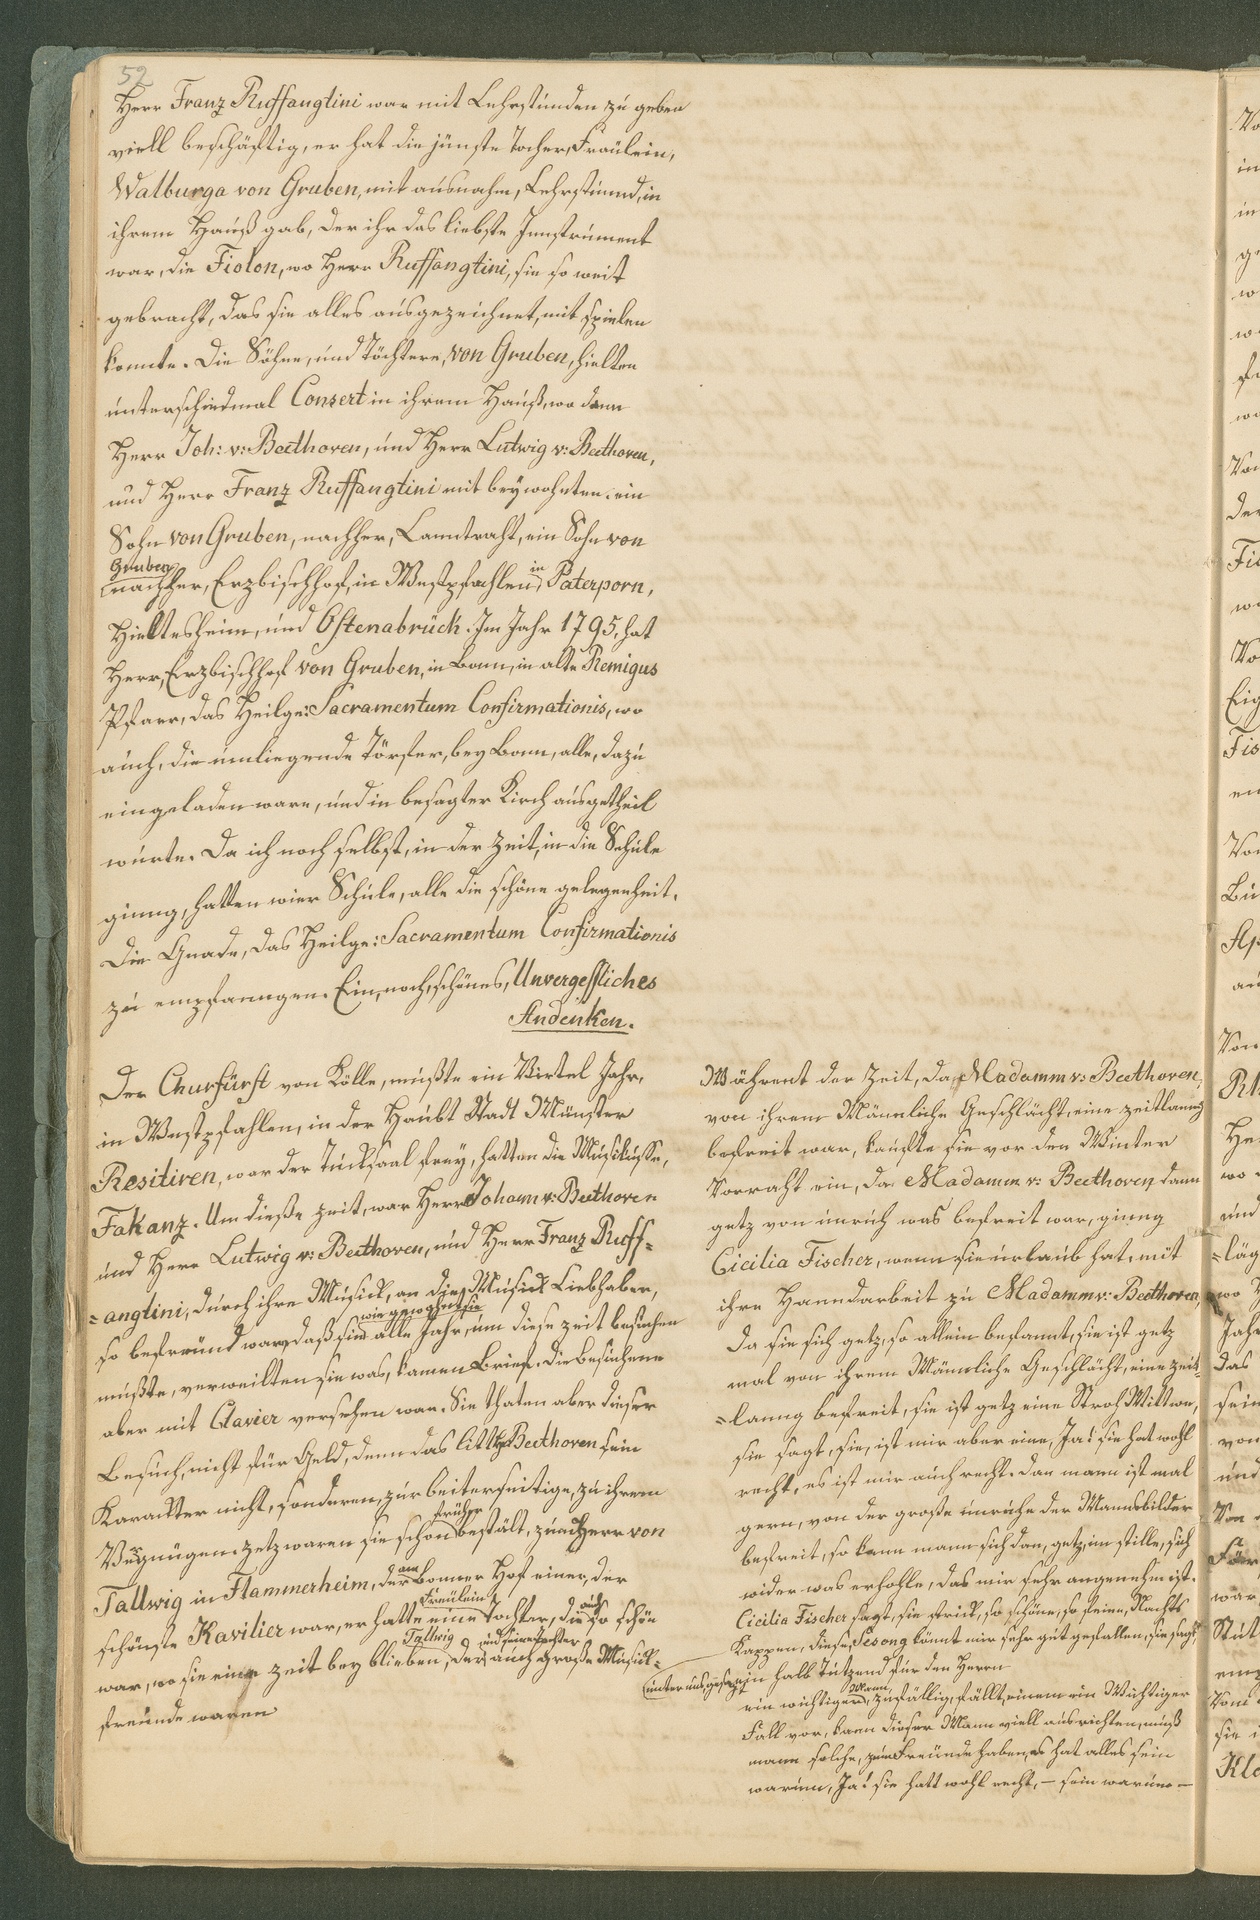 52
Herr Franz Ruffangtini war mit Lehrstunden zu geben
viell beschäftig, er hat die jünste Tocher, Fräulein,
Walburga von Gruben, mit ausnahm, Lehrstunnd, in
ihrem Hauß gab, der ihr das liebste Innstrument
war, die Fiolon, wo Herr Ruffangtini, sie so weit
gebracht, das sie alles ausgezeichnet, mit spielen
konnte. Die Söhne, und Töchtere, von Gruben, hielten
unterschiedmal Consert in ihrem Hauß, wo dann
Herr Joh: v: Beethoven, und Herr Lutwig v: Beethoven,
und Herr Franz Ruffangtini mit beywohnten. ein
Sohn von Gruben, nachher, Lanntraht, ein Sohn von
Gruben
nachher, Erzbischhof, in Westpfahlen, in Paterporn,
Hieltesheim, und Ostenabrück. Im Jahr 1795, hat
Herr, Erzbischhof von Gruben, in Bonn, in alte Remigus
Pfarr, das Heilge: Sacramentum Confirmationis, wo
auch, die umliegende Törfer, bey Bonn, alle, dazu
eingeladen ware, und in besagter Kirch ausgetheil
wurte. Da ich noch selbst, in der Zeit, in die Schule
ginng, hatten wier Schüle, alle die schöne gelegenheit,
Die Gnade, das Heilge: Sacramentum Confirmationis
zu empfanngen. Ein, noch, schönes, Unvergessliches
Andenken.
Der Churfürst von Kölle, mußte ein Virtel Jahr,
in Westpfahlen, in der Haubt Stadt Münster
Resitiren, war der Tucksaal frey, hatten die Musikusse,
Fakanz. Um dieße zeit, war Herr Johann v: Beethoven
und Herr Lutwig v: Beethoven, und Herr Franz Ruff-
=angtini, durch ihre Musick, an die Musick Liebhaber,
wie gewohnt sie
so befreund ware, daß sie alle Jahr, um diese zeit besuchen
mußte, verweilten sie was, kamen Brief. Die besuchene
aber mit Clavier versehen war. Sie thaten aber dieser
Besuch, nicht für Geld, denn das litte Beethoven sein
Karackter nicht, sonderen, zur beiterseitige, zu ihrem
Vergnügen. zetz waren sie schon früher bestält, zum Herr von
Tallwig in Flammerheim, der am Bonner Hof einer, der
schönste Kavilier war, er hatte eine Fräulein Tochter, die auch so schön
war, wo sie eine zeit bey blieben, der Tallwig und seine Tochter auch große Musick-
freunde waren
Währent der Zeit, da, Madamm v: Beethoven,
von ihrem Männliche Geschlächt, eine zeitlanng
befreit war, kaufte sie vor den Winter
Vorraht ein, da Madamm v: Beethoven dann
getz von unruh was befreit war, ginng
Cicilia Fischer, wenn sie urlaub hat, mit
ihre Hanndarbeit zu Madamm v: Beethoven,
Da sie sich getz, so allein befannt, sie ist getz
mal von ihrem Männliche Geschlächt, eine zeit-
=lanng befreit, sie ist getz eine Stroh Wittwe,
sie sagt, sie, ist mir aber eine, Ja! sie hat wohl
recht, es ist mir auch recht. Dan mann ist mal
gern, von der große unruhe der Mannsbilder
befreit, so kann mann sich dan, getz, im stille, sich
wider was erholle, das mir sehr angenehm ist.
Cicilia Fischer sagt, sie strick, so schöne, so feine, Nachts
Kappen, diese, Fesong könnt mir sehr gut gefallen, sie sagt
ein halb Tutzend für den Herrn
ein wichtiger, zufällig, fällt, einem ein Wichtiger
Fall vor, kann dieser Mann viell ausrichten, muß
mann solche, zum Freunde haben, es hat alles sein
warum, Ja! sie hatt wohl recht, – sein warum –